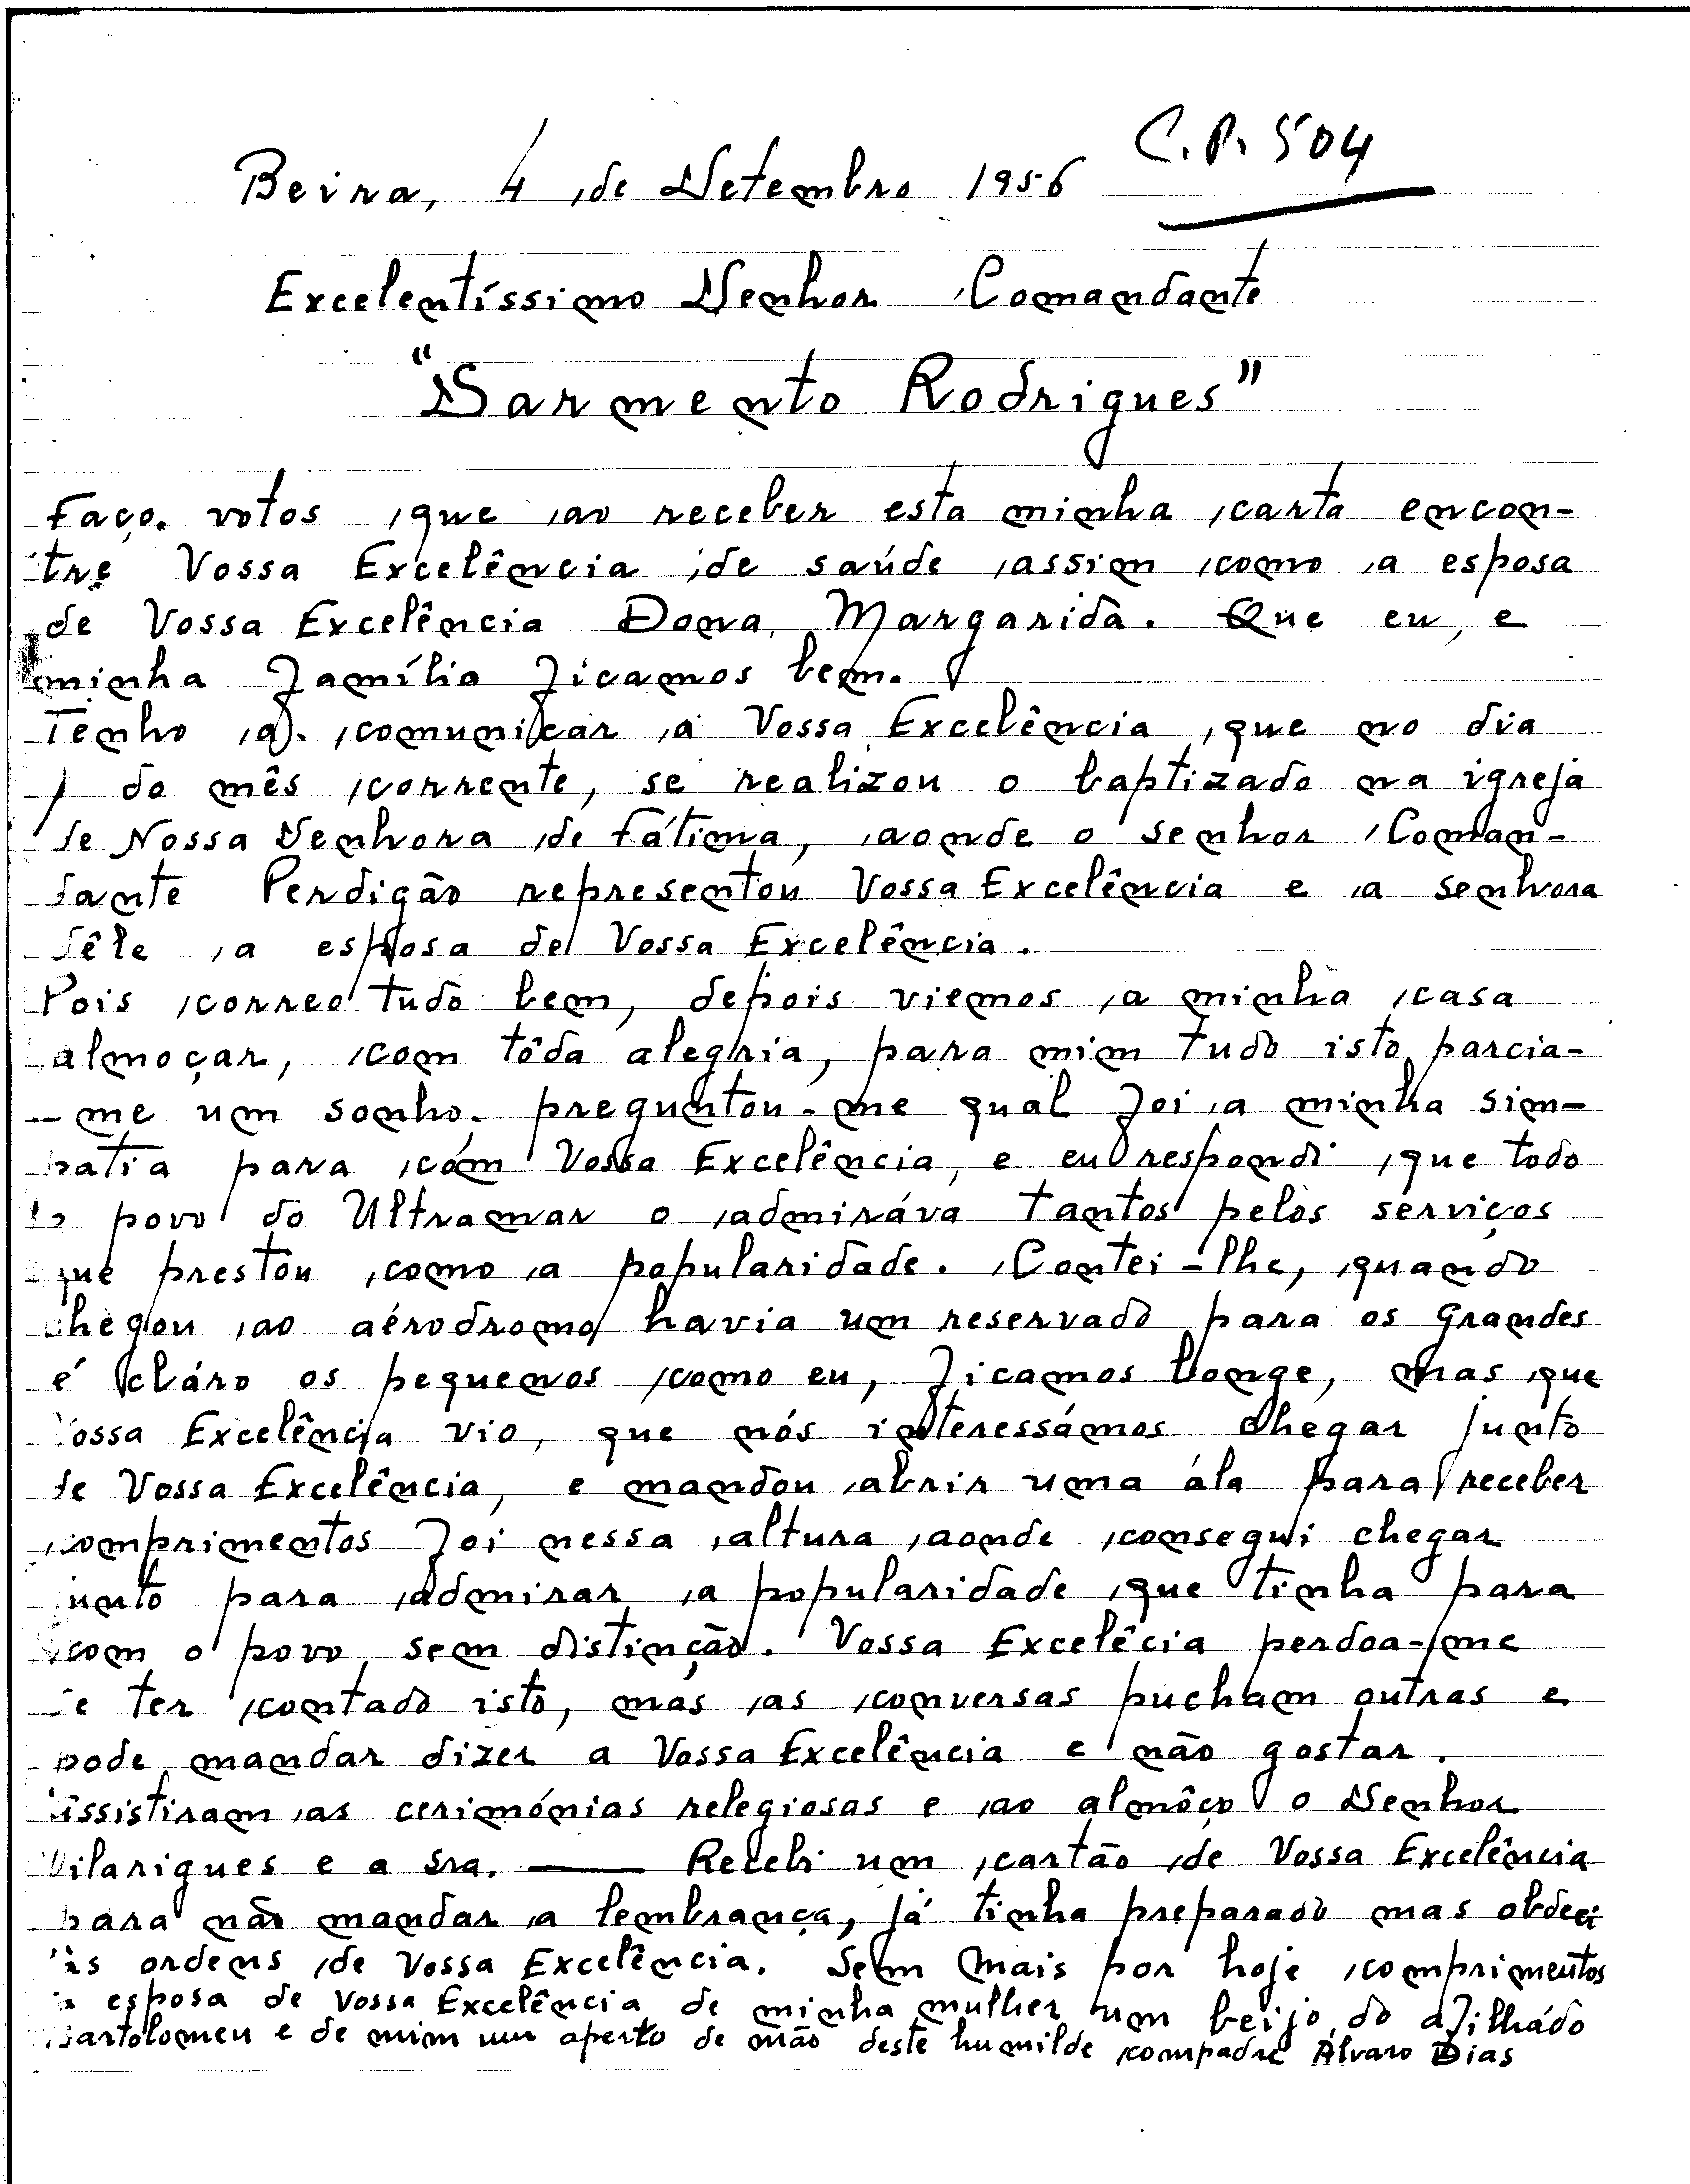 C.P. 504
Beira, 4 de Setembro 1956
Excelentíssimo Senhor Comandante
"Sarmento Rodrigues"
Faço. votos que ao receber esta minha carta encon-
tre Vossa Excelência de saúde assim como a esposa
de Vossa Excelência Dona Margarida. Que eu, e
minha família ficamos bem.
Tenho a comunicar a Vossa Excelência que no dia
1 do mês corrente, se realizou o baptizado na igreja
de Nossa Senhora de Fátima, aonde o senhor Coman-
dante Perdigão representou Vossa Excelência e a senhora
dêle a esposa de Vossa Excelência.
Pois correo tudo bem, depois viemos a minha casa
almoçar, com tôda alegria, para mim tudo isto parcia-
-me um sonho. preguntou-me qual foi a minha sim-
patia para cóm Vossa Excelência, e eu respondi que todo
o povo do Ultramar o admiráva tantos pelos serviços
que prestou como a popularidade. Contei-lhe, quando
chegou ao aérodromo havia um reservado para os grandes
é cláro os pequenos como eu, ficamos longe, mas que
Vossa Excelência vio, que nós interessámos chegar junto
de Vossa Excelência, e mandou abrir uma ála para receber
comprimentos foi nessa altura aonde consegui chegar
junto para admirar a popularidade que tinha para
com o povo sem distinção. Vossa Excelêcia perdoa-me
de ter contado isto, mas as conversas pucham outras e
pode mandar dizer a Vossa Excelência e não gostar.
Assistiram as cerimónias relegiosas e ao almôço o Senhor
Vilarigues e a Sra. —— Recebi um cartão de Vossa Excelência
para não mandar a lembrança, já tinha preparado mas obdeci
às ordens de Vossa Excelência. Sem mais por hoje comprimentos
a esposa de Vossa Excelência de minha mulher um beijo do afilhádo
Bartolomeu e de mim um aperto de mão deste humilde compadre Alvaro Dias